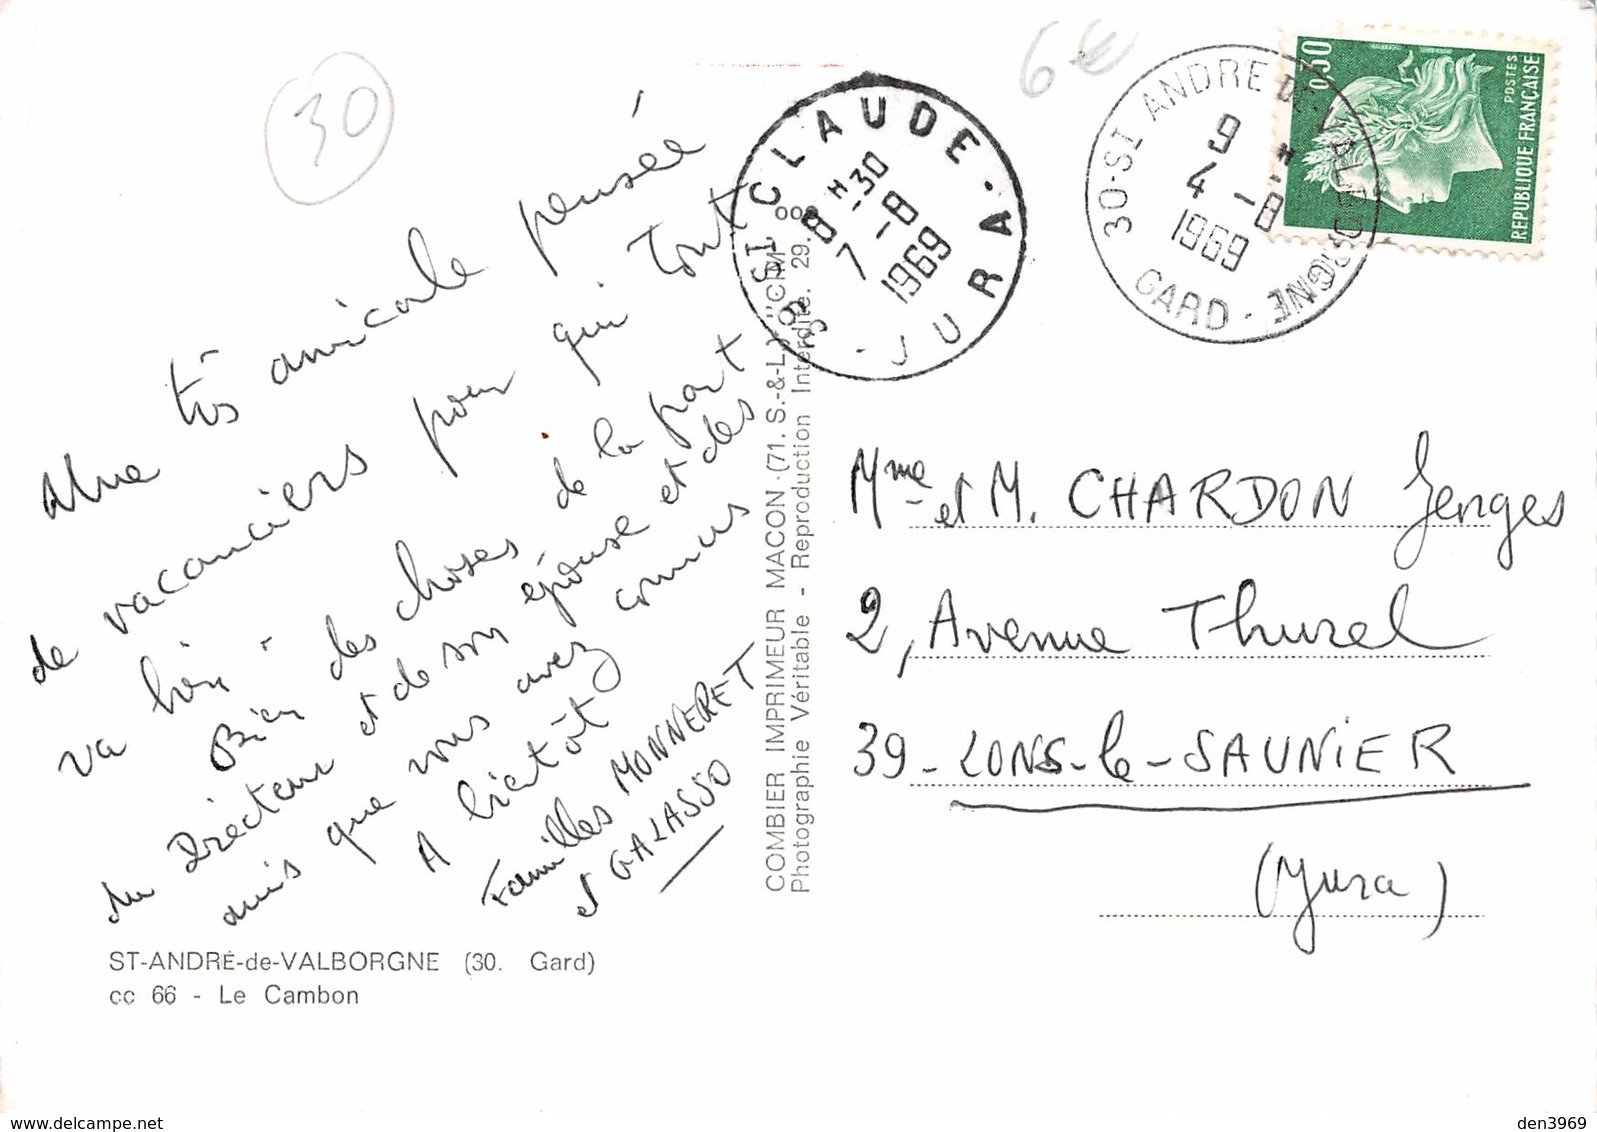 30
6€
Une très amicale pensée
de vacanciers pour qui tout
va bien -
Bien des choses de la part
du Directeur et de son épouse et des
amis que vous avez connus
A bientôt
Familles MONNERET
et GALASSO
ST-ANDRÉ-de-VALBORGNE (30. Gard)
cc 66 - Le Cambon
COMBIER IMPRIMEUR MACON (71. S.-&-L.) "CIM"
Photographie Véritable - Reproduction Interdite. 29.
39 ST CLAUDE
8 H 30
7 - 8
1969
JURA
30-ST ANDRE DE VALBORGNE
9 H
4 - 8
1969
GARD
0,30
POSTES
REPUBLIQUE FRANÇAISE
Mme et M. CHARDON Georges
2, Avenue Thurel
39 - LONS-le-SAUNIER
(Jura)
www.delcampe.net
den3969